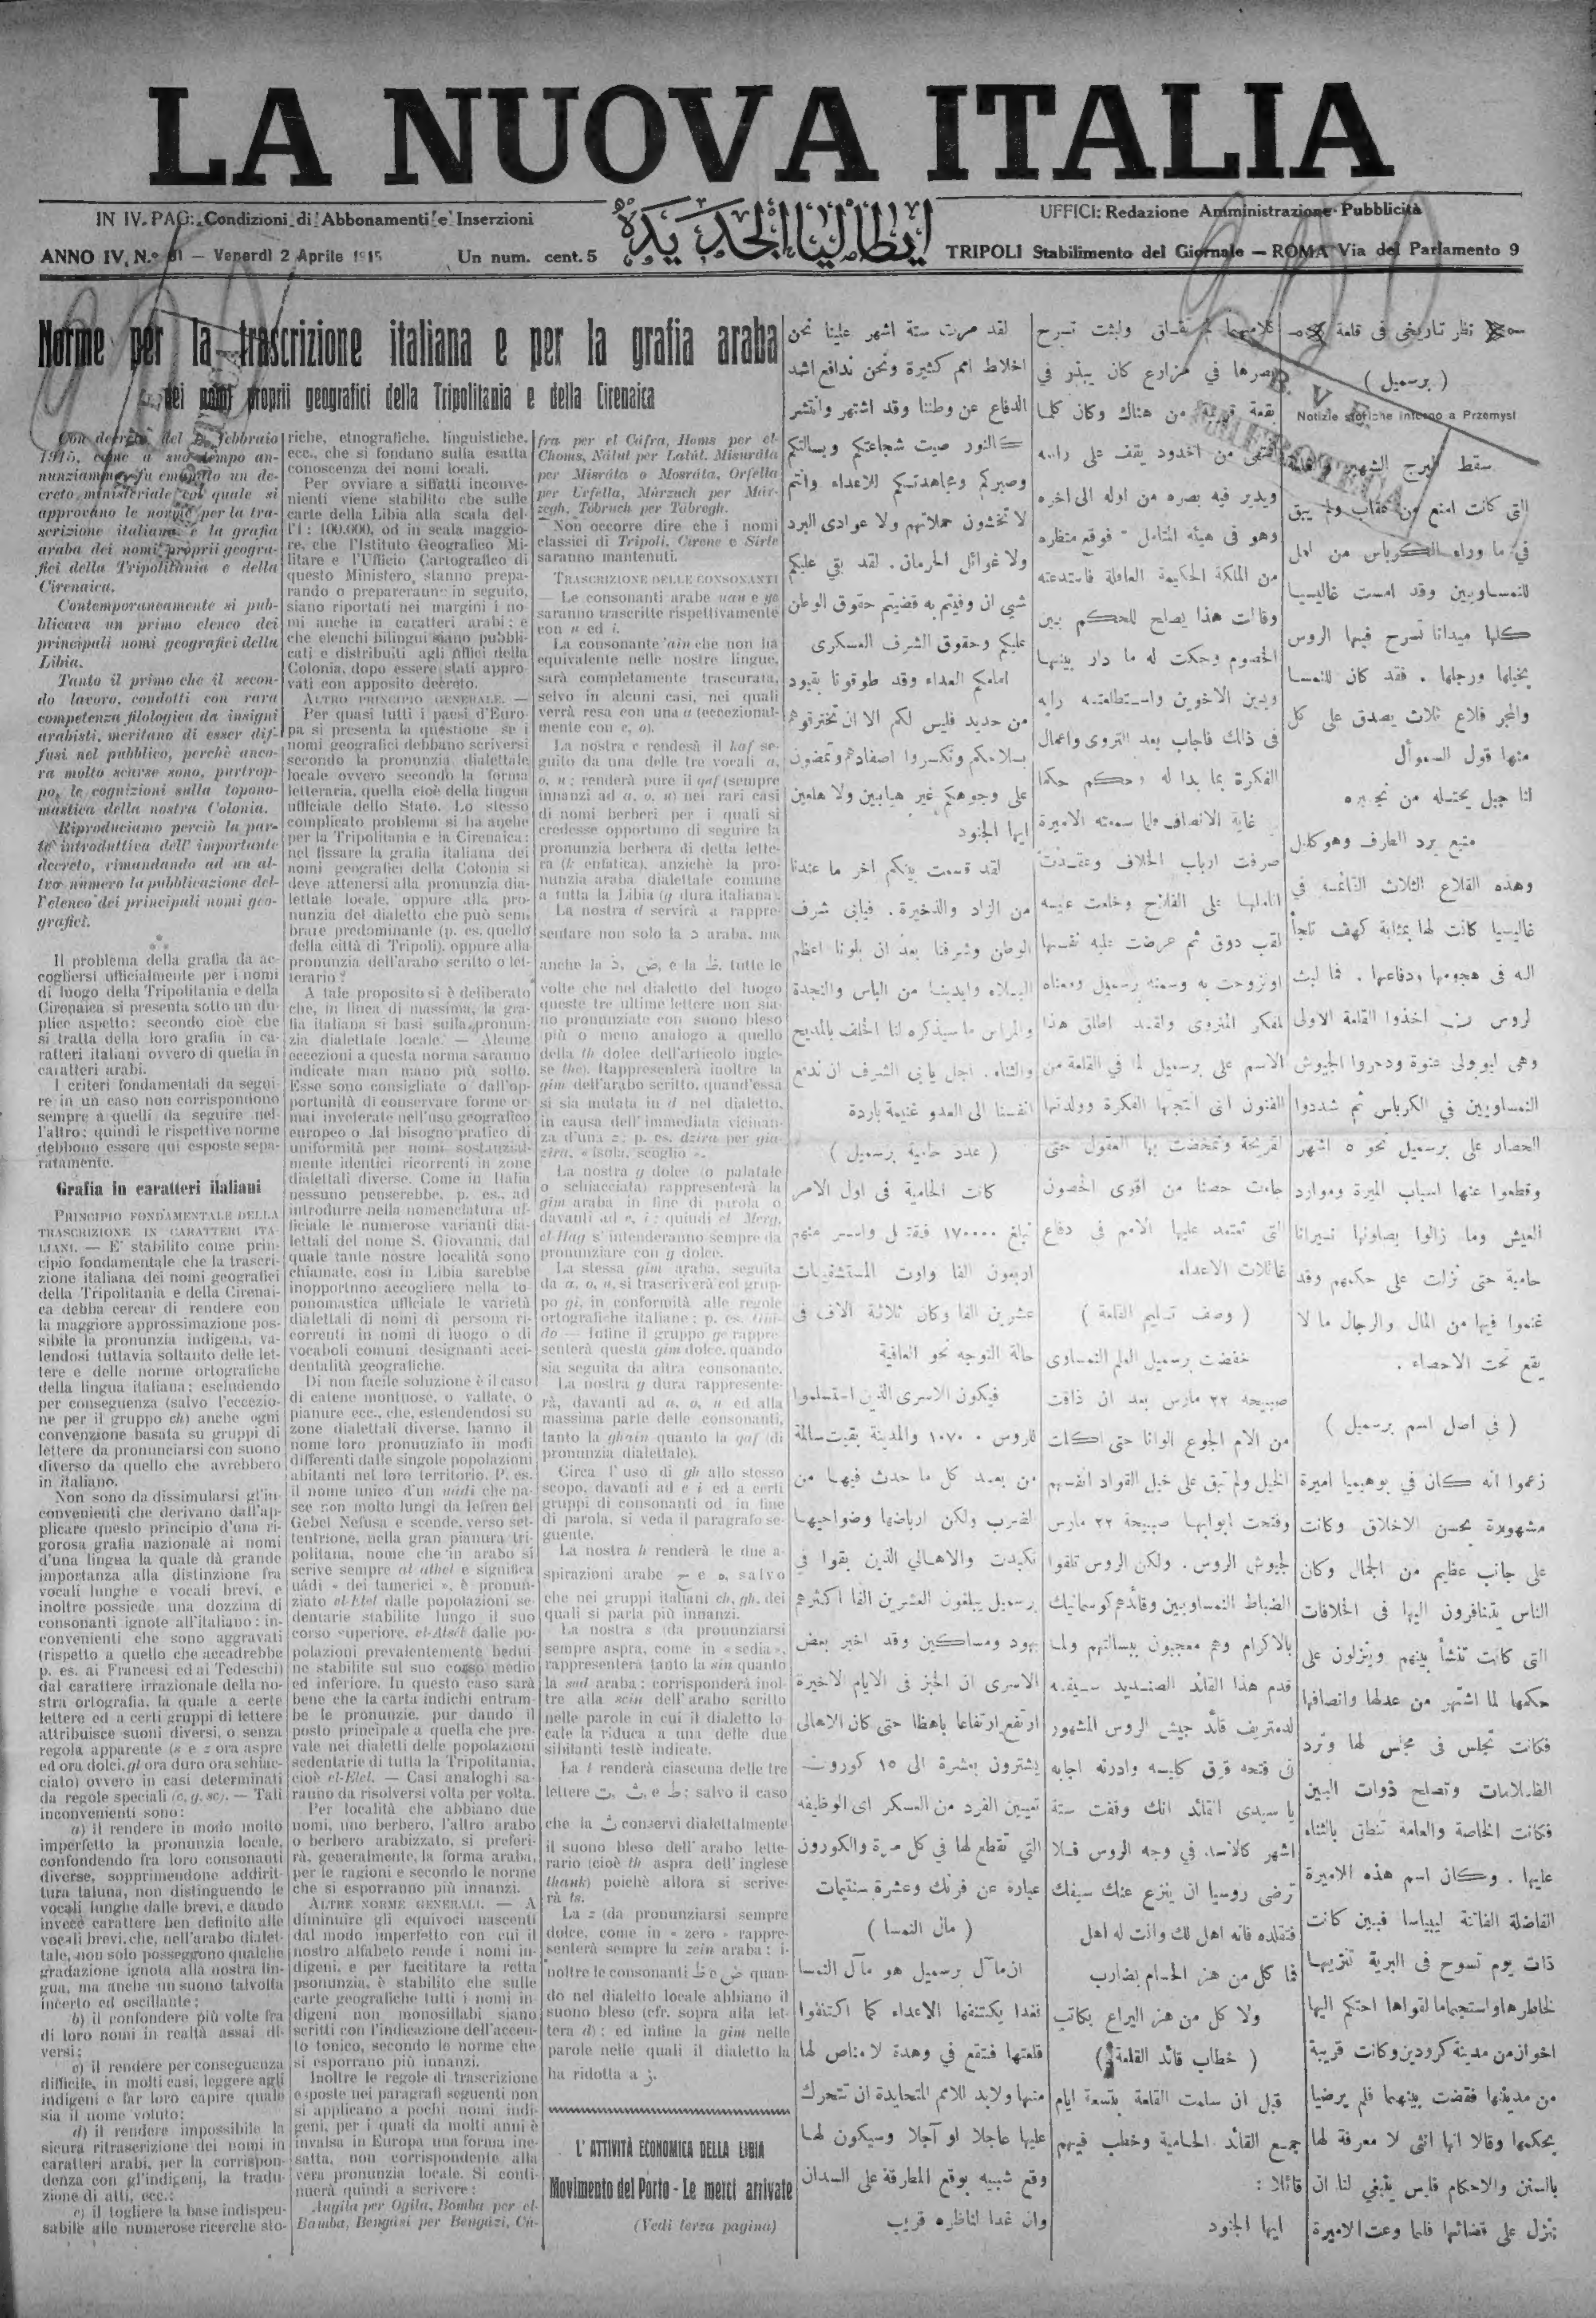 LA NUOVA ITALIA
IN IV. PAG: Condizioni di Abbonamenti e Inserzioni
ايطاليا الجديدة
UFFICI: Redazione Amministrazione-Pubblicità
ANNO IV. N.º 81 — Venerdì 2 Aprile 1915
Un num. cent. 5
TRIPOLI Stabilimento del Giornale — ROMA Via del Parlamento 9
Norme per la trascrizione italiana e per la grafia araba
dei nomi proprii geografici della Tripolitania e della Cirenaica
Con decreto del febbraio
1915, come a suo tempo an-
nunziammo, fu emanato un de-
creto ministeriale col quale si
approvano le norme per la tra-
scrizione italiana e la grafia
araba dei nomi proprii geogra-
fici della Tripolitania e della
Cirenaica.
Contemporaneamente si pub-
blicava un primo elenco dei
principali nomi geografici della
Libia.
Tanto il primo che il secon-
do lavoro, condotti con rara
competenza filologica da insigni
arabisti, meritano di esser dif-
fusi nel pubblico, perchè anco-
ra molto scarse sono, purtrop-
po, le cognizioni sulla topono-
mastica della nostra Colonia.
Riproduciamo perciò la par-
te introduttiva dell' importante
decreto, rimandando ad un al-
tro numero la pubblicazione del-
l'elenco dei principali nomi geo-
grafici.
Il problema della grafia da ac-
cogliersi ufficialmente per i nomi
di luogo della Tripolitania e della
Cirenaica si presenta sotto un du-
plice aspetto: secondo cioè che
si tratta della loro grafia in ca-
ratteri italiani ovvero di quella in
caratteri arabi.
I criteri fondamentali da segui-
re in un caso non corrispondono
sempre a quelli da seguire nel-
l'altro; quindi le rispettive norme
debbono essere qui esposte sepa-
ratamente.
Grafia in caratteri italiani
PRINCIPIO FONDAMENTALE DELLA
TRASCRIZIONE IN CARATTERI ITA-
LIANI. — E' stabilito come prin-
cipio fondamentale che la trascri-
zione italiana dei nomi geografici
della Tripolitania e della Cirenai-
ca debba cercar di rendere con
la maggiore approssimazione pos-
sibile la pronunzia indigena, va-
lendosi tuttavia soltanto delle let-
tere e delle norme ortografiche
della lingua italiana; escludendo
per conseguenza (salvo l'eccezio-
ne per il gruppo ch) anche ogni
convenzione basata su gruppi di
lettere da pronunciarsi con suono
diverso da quello che avrebbero
in italiano.
Non sono da dissimularsi gl'in-
convenienti che derivano dall'ap-
plicare questo principio d'una ri-
gorosa grafia nazionale ai nomi
d'una lingua la quale dà grande
importanza alla distinzione fra
vocali lunghe e vocali brevi, e
inoltre possiede una dozzina di
consonanti ignote all'italiano: in-
convenienti che sono aggravati
(rispetto a quello che accadrebbe
p. es. ai Francesi ed ai Tedeschi)
dal carattere irrazionale della no-
stra ortografia, la quale a certe
lettere ed a certi gruppi di lettere
attribuisce suoni diversi, o senza
regola apparente (s e z ora aspre
ed ora dolci, gl ora duro ora schiac-
ciato) ovvero in casi determinati
da regole speciali (c, g, sc). — Tali
inconvenienti sono:
a) il rendere in modo molto
imperfetto la pronunzia locale,
confondendo fra loro consonanti
diverse, sopprimendone addirit-
tura taluna, non distinguendo le
vocali lunghe dalle brevi, e dando
invece carattere ben definito alle
vocali brevi, che, nell'arabo dialet-
tale, non solo posseggono qualche
gradazione ignota alla nostra lin-
gua, ma anche un suono talvolta
incerto ed oscillante;
b) il confondere più volte fra
di loro nomi in realtà assai di-
versi;
c) il rendere per conseguenza
difficile, in molti casi, leggere agli
indigeni e far loro capire quale
sia il nome voluto;
d) il rendere impossibile la
sicura ritrascrizione dei nomi in
caratteri arabi, per la corrispon-
denza con gl'indigeni, la tradu-
zione di atti, ecc.;
e) il togliere la base indispen-
sabile alle numerose ricerche sto-
riche, etnografiche, linguistiche,
ecc., che si fondano sulla esatta
conoscenza dei nomi locali.
Per ovviare a siffatti inconve-
nienti viene stabilito che sulle
carte della Libia alla scala del-
l'1: 100.000, od in scala maggio-
re, che l'Istituto Geografico Mi-
litare e l'Ufficio Cartografico di
questo Ministero, stanno prepa-
rando o prepareranno in seguito,
siano riportati nei margini i no-
mi anche in caratteri arabi; e
che elenchi bilingui siano pubbli-
cati e distribuiti agli uffici della
Colonia, dopo essere stati appro-
vati con apposito decreto.
ALTRO PRINCIPIO GENERALE. —
Per quasi tutti i paesi d'Euro-
pa si presenta la questione se i
nomi geografici debbano scriversi
secondo la pronunzia dialettale
locale ovvero secondo la forma
letteraria, quella cioè della lingua
ufficiale dello Stato. Lo stesso
complicato problema si ha anche
per la Tripolitania e la Cirenaica:
nel fissare la grafia italiana dei
nomi geografici della Colonia si
deve attenersi alla pronunzia dia-
lettale locale, oppure alla pro-
nunzia del dialetto che può sem-
brare predominante (p. es. quello
della città di Tripoli), oppure alla
pronunzia dell'arabo scritto o let-
terario?
A tale proposito si è deliberato
che, in linea di massima, la gra-
fia italiana si basi sulla pronun-
zia dialettale locale. — Alcune
eccezioni a questa norma saranno
indicate man mano più sotto.
Esse sono consigliate o dall'op-
portunità di conservare forme or-
mai inveterate nell'uso geografico
europeo o dal bisogno pratico di
uniformità per nomi sostanzial-
mente identici ricorrenti in zone
dialettali diverse. Come in Italia
nessuno penserebbe, p. es., ad
introdurre nella nomenclatura uf-
ficiale le numerose varianti dia-
lettali del nome S. Giovanni, dal
quale tante nostre località sono
chiamate, così in Libia sarebbe
inopportuno accogliere nella to-
ponomastica ufficiale le varietà
dialettali di nomi di persona ri-
correnti in nomi di luogo o di
vocaboli comuni designanti acci-
dentalità geografiche.
Di non facile soluzione è il caso
di catene montuose, o vallate, o
pianure ecc., che, estendendosi su
zone dialettali diverse, hanno il
nome loro pronunziato in modi
differenti dalle singole popolazioni
abitanti nel loro territorio. P. es.
il nome unico d'un uádi che na-
sce non molto lungi da Iefren nel
Gebel Nefusa e scende, verso set-
tentrione, nella gran pianura tri-
politana, nome che in arabo si
scrive sempre al athel e significa
uádi « dei tamerici », è pronun-
ziato el-Etel dalle popolazioni se-
dentarie stabilite lungo il suo
corso superiore, el-Atsel dalle po-
polazioni prevalentemente bedui-
ne stabilite sul suo corso medio
ed inferiore. In questo caso sarà
bene che la carta indichi entram-
be le pronunzie, pur dando il
posto principale a quella che pre-
vale nei dialetti delle popolazioni
sedentarie di tutta la Tripolitania,
cioè el-Etel. — Casi analoghi sa-
ranno da risolversi volta per volta.
Per località che abbiano due
nomi, uno berbero, l'altro arabo
o berbero arabizzato, si preferi-
rà, generalmente, la forma araba,
per le ragioni e secondo le norme
che si esporranno più innanzi.
ALTRE NORME GENERALI. — A
diminuire gli equivoci nascenti
dal modo imperfetto con cui il
nostro alfabeto rende i nomi in-
digeni, e per facilitare la retta
psonunzia, è stabilito che sulle
carte geografiche tutti i nomi in-
digeni non monosillabi siano
scritti con l'indicazione dell'accen-
to tonico, secondo le norme che
si esporrano più innanzi.
Inoltre le regole di trascrizione
esposte nei paragrafi seguenti non
si applicano a pochi nomi indi-
geni, per i quali da molti anni è
invalsa in Europa una forma ine-
satta, non corrispondente alla
vera pronunzia locale. Si conti-
nuerà quindi a scrivere:
Augíla per Ogíla, Bomba per el-
Bamba, Bengási per Bengázi, Cú-
fra per el Cáfra, Homs per el-
Choms, Nálut per Lalút, Misuráta
per Misráta o Mosráta, Orfella
per Urfella, Múrzuch per Múr-
zegh, Tóbruch per Tobregh.
Non occorre dire che i nomi
classici di Tripoli, Cirene e Sirte
saranno mantenuti.
TRASCRIZIONE DELLE CONSONANTI
— Le consonanti arabe uau e ye
saranno trascritte rispettivamente
con u ed i.
La consonante 'ain che non ha
equivalente nelle nostre lingue,
sarà completamente trascurata,
selvo in alcuni casi, nei quali
verrà resa con una a (eccezional-
mente con e, o).
La nostra c renderà il kaf se-
guito da una delle tre vocali a,
o, u; renderà pure il qaf (sempre
innanzi ad a, o, u) nei rari casi
di nomi berberi per i quali si
credesse opportuno di seguire la
pronunzia berbera di detta lette-
ra (k enfatica), anzichè la pro-
nunzia araba dialettale comune
a tutta la Libia (g dura italiana).
La nostra d servirà a rappre-
sentare non solo la د araba, ma
anche la ذ, ض, e la ظ, tutte le
volte che nel dialetto del luogo
queste tre ultime lettere non sia-
no pronunziate con suono bleso
più o meno analogo a quello
della th dolce dell'articolo ingle-
se the). Rappresenterà inoltre la
gim dell'arabo scritto, quand'essa
si sia mutata in d nel dialetto,
in causa dell'immediata vicinan-
za d'una z; p. es. dzira per gia-
zira, « isola, scoglio ».
La nostra g dolce (o palatale
o schiacciata) rappresenterà la
gim araba in fine di parola o
davanti ad e, i; quindi el Merg,
el-Hag s'intenderanno sempre da
pronunziare con g dolce.
La stessa gim araba, seguita
da a, o, u, si trascriverà col grup-
po gi, in conformità alle regole
ortografiche italiane; p. es. Giû-
do — Infine il gruppo ge rappre-
senterà questa gim dolce, quando
sia seguita da altra consonante.
La nostra g dura rappresente-
rà, davanti ad a, o, u ed alla
massima parte delle consonanti,
tanto la ghain quanto la qaf (di
pronunzia dialettale).
Circa l'uso di gh allo stesso
scopo, davanti ad e i ed a certi
gruppi di consonanti od in fine
di parola, si veda il paragrafo se-
guente.
La nostra h renderà le due a-
spirazioni arabe ح e ه, salvo
che nei gruppi italiani ch, gh, dei
quali si parla più innanzi.
La nostra s (da pronunziarsi
sempre aspra, come in « sedia »,
rappresenterà tanto la sin quanto
la sad araba; corrisponderà inol-
tre alla scin dell'arabo scritto
nelle parole in cui il dialetto lo
cale la riduca a una delle due
sibilanti testè indicate.
La t renderà ciascuna delle tre
lettere ت, ث, e ط; salvo il caso
che la ث conservi dialettalmente
il suono bleso dell'arabo lette-
rario (cioè th aspra dell'inglese
thank) poichè allora si scrive-
rà ts.
La z (da pronunziarsi sempre
dolce, come in « zero » rappre-
senterà sempre la zein araba; i-
noltre le consonanti ض e ظ quan-
do nel dialetto locale abbiano il
suono bleso (cfr. sopra alla let-
tera d); ed infine la gim nelle
parole nelle quali il dialetto la
ha ridotta a ز.
L' ATTIVITÀ ECONOMICA DELLA LIBIA
Movimento del Porto - Le merci arrivate
(Vedi terza pagina)
نظر تاريخى فى قلعة
( برسميل )
Notizie storiche intorno a Przemysl
التى كانت امنع من عقاب ولم يبق
في ما وراء الكرباس من امل
للنمساويين وقد امست غاليسيا
كلها ميدانا تسرح فيها الروس
بخيلها ورجلها . فقد كان للنمسا
والمجر قلاع ثلاث يصدق على كل
منها قول السموأل
لنا جبل يحتله من نجيره
منيع يرد الطرف وهو كليل
وهذه القلاع الثلاث القائمة في
غاليسيا كانت لها بمثابة كهف تلجأ
اليه فى هجومها ودفاعها . فما لبث
وهى ليوبولى عنوة ودحروا الجيوش
النمساويين في الكرباس ثم شددوا
الحصار على برسميل نحو ٥ اشهر
وقطعوا عنها اسباب الميرة وموارد
العيش وما زالوا يصلونها نيرانا
حامية حتى نزلت على حكمهم وقد
غنموا فيها من المال والرجال ما لا
يقع تحت الاحصاء .
( في اصل اسم برسميل )
زعموا انه كان في بوهيميا اميرة
مشهورة بحسن الاخلاق وكانت
على جانب عظيم من الجمال وكان
الناس يتنافرون اليها فى الخلافات
التى كانت تنشأ بينهم وينزلون على
حكمها لما اشتهر من عدلها وانصافها
فكانت تجلس فى مجلس لها وترد
الظلامات وتصلح ذوات البين
فكانت الخاصة والعامة تنطق بالثناء
عليها . وكان اسم هذه الاميرة
الفاضلة الفاتنة ليبياسا فبين كانت
ذات يوم تسوح فى البرية تنزيها
لخاطرها واستجماما لقواها احتكم اليها
اخوان من مدينة كرودين وكانت قريبة
من مدينتها فقضت بينهما فلم يرضيا
بحكمها وقالا انها انثى لا معرفة لها
بالسنن والاحكام فليس ينبغي لنا ان
ننزل على قضائها فلما وعت الاميرة
كلامهما لم تقلق ولبثت تسرح
بصرها في مزارع كان يبذر في
بقعة قريبة من هناك وكان كلما
انتهى من اخدود يقف على راسه
ويدير فيه بصره من اوله الى اخره
وهو فى هيئة المتامل - فوقع منظره
من الملكة الحكيمة العاقلة فاستدعته
وقالت هذا يصلح للحكم بين
الخصوم وحكت له ما دار بينها
وبين الاخوين واستطلعته رايه
فى ذلك فاجاب بعد التروى واعمال
الفكرة بما بدا له وحكم حكما
غاية الانصاف فلما سمعته الاميرة
صرفت ارباب الخلاف وعقدت
اناملها على الفلاح وخلعت عليه
لقب دوق ثم عرضت عليه نفسها
لمفكر المتروى ولقد اطلق هذا
الاسم على برسميل لما في القلعة من
الفنون التى انتجتها الفكرة وولدتها
القريحة وتمخضت بها العقول حتى
جاءت حصنا من اقوى الحصون
التى تعتمد عليها الامم فى دفاع
غائلات الاعداء
( وصف تسليم القلعة )
خفضت برسميل العلم النمساوى
صبيحه ٢٢ مارس بعد ان ذاقت
من الام الجوع الوانا حتى اكلت
الخيل ولم تبق على خيل القواد انفسهم
وفتحت ابوابها صبيحة ٢٢ مارس
لجيوش الروس . ولكن الروس تلقوا
الضباط النمساويين وقائدهم كوسمانيك
بالاكرام وهم معجبون ببسالتهم ولما
قدم هذا القائد الصنديد سيفه
لدمتريف قائد جيش الروس المشهور
يا سيدى القائد انك وقفت ستة
اشهر كالاسد في وجه الروس فلا
ترضى روسيا ان ينزع عنك سيفك
فتقلده فانه اهل لك وانت له اهل
فما كل من هز الحسام بضارب
ولا كل من هز اليراع بكاتب
( خطاب قائد القلعة )
قبل ان سلمت القلعة بتسعة ايام
جمع القائد الحامية وخطب فيهم
قائلا :
ايها الجنود
لقد مرت ستة اشهر علينا نحن
اخلاط امم كثيرة ونحن ندافع اشد
الدفاع عن وطننا وقد اشتهر وانتشر
كالنور صيت شجاعتكم وبسالتكم
وصبركم ومجاهدتكم للاعداء وانتم
لا تخشون حملاتهم ولا عوادى البرد
ولا غوائل الحرمان . لقد بقي عليكم
شيى ان وفيتم به قضيتم حقوق الوطن
عليكم وحقوق الشرف العسكرى
امامكم العداء وقد طوقونا بقيود
من حديد فليس لكم الا ان تخترقوهم
بسلاحكم وتكسروا اصفادهم وتمضون
على وجوهكم غير هيابين ولا هلعين
ايها الجنود
لقد قسمت بينكم اخر ما عندنا
من الزاد والذخيرة . فيابى شرف
الوطن وشرفنا بعد ان بلونا اعظم
البلاء وابدينا من الباس والنجدة
والمراس ما سيذكره لنا الخلف بالمديح
والثناء . اجل يابى الشرف ان ندفع
انفسنا الى العدو غنيمة باردة
( عدد حامية برسميل )
كانت الحامية فى اول الامر
تبلغ ١٧٠٠٠٠ فقتل واسر منهم
اربعون الفا واوت المستشفيات
عشرين الفا وكان ثلاثة الاف فى
حالة التوجه نحو العافية
فيكون الاسرى الذين استسلموا
للروس ١٠٧٠٠٠ والمدينة بقيت سالمة
من بعد كل ما حدث فيها من
الضرب ولكن ارباضها وضواحيها
نكبت والاهالي الذين بقوا في
برسميل يبلغون العشرين الفا اكثرهم
يهود ومساكين وقد اخبر بعض
الاسرى ان الخبز فى الايام الاخيرة
ارتفع ارتفاعا باهظا حتى كان الاهالى
يشترون بعشرة الى ١٥ كورون
تعيين الفرد من العسكر اى الوظيفه
التي تقطع لها في كل مرة والكورون
عبارة عن فرنك وعشرة سنتيمات
( مآل النمسا )
ان مآل برسميل هو مآل النمسا
فغدا يكتنفها الاعداء كما اكتنفوا
قلعتها فتقع في وهدة لا مناص لها
منها ولابد للامم المتحايدة ان تتحرك
عليها عاجلا او آجلا وسيكون لها
وقع شبيه بوقع المطرقة على السدان
وان غدا لناظره قريب